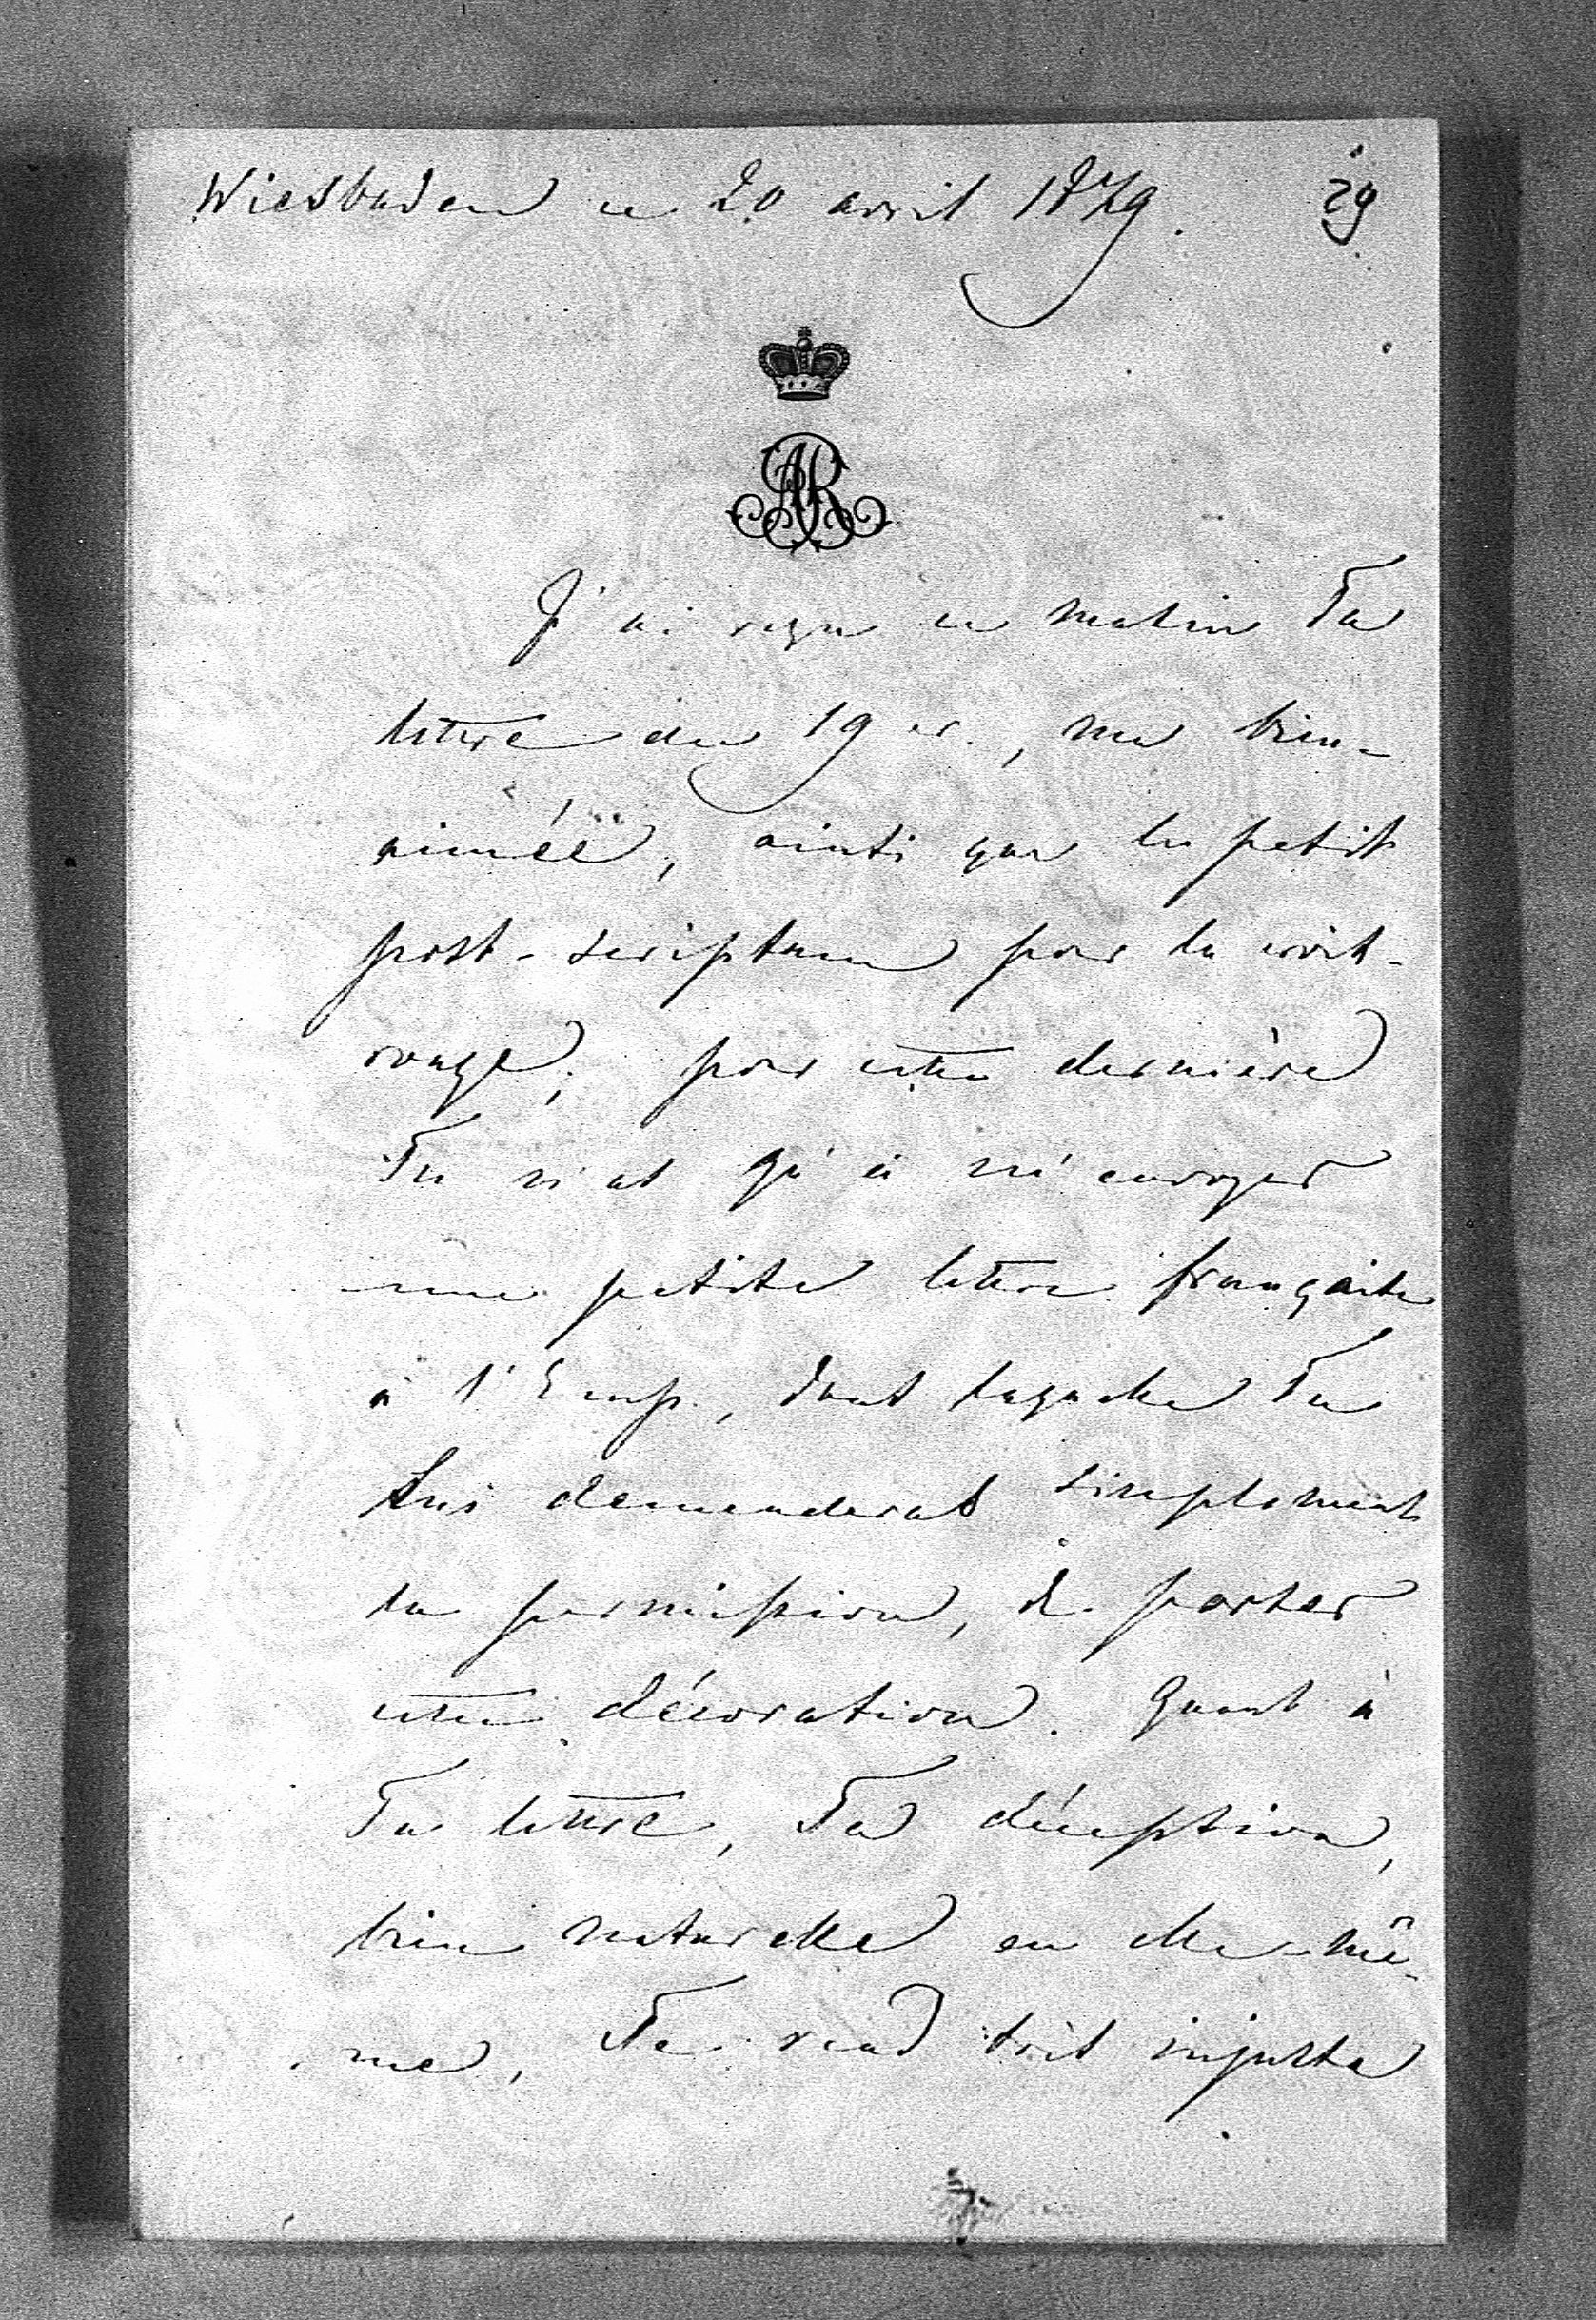 Wiesbaden ce 20 avril 1879. 29
AR
J'ai reçu ce matin Ta
lettre du 19 cr., ma bien-
aimée, ainsi que le petit
post-scriptum pour la croix-
rouge; pour cette dernière
Tu n'as qu'à m'envoyer
une petite lettre française
à l'Emp., dans laquelle Tu
Lui demanderas simplement
la permission, de porter
cette décoration. Quant à
Ta lettre, Ta déception,
bien naturelle en elle-mê-
me, Te rend très injuste